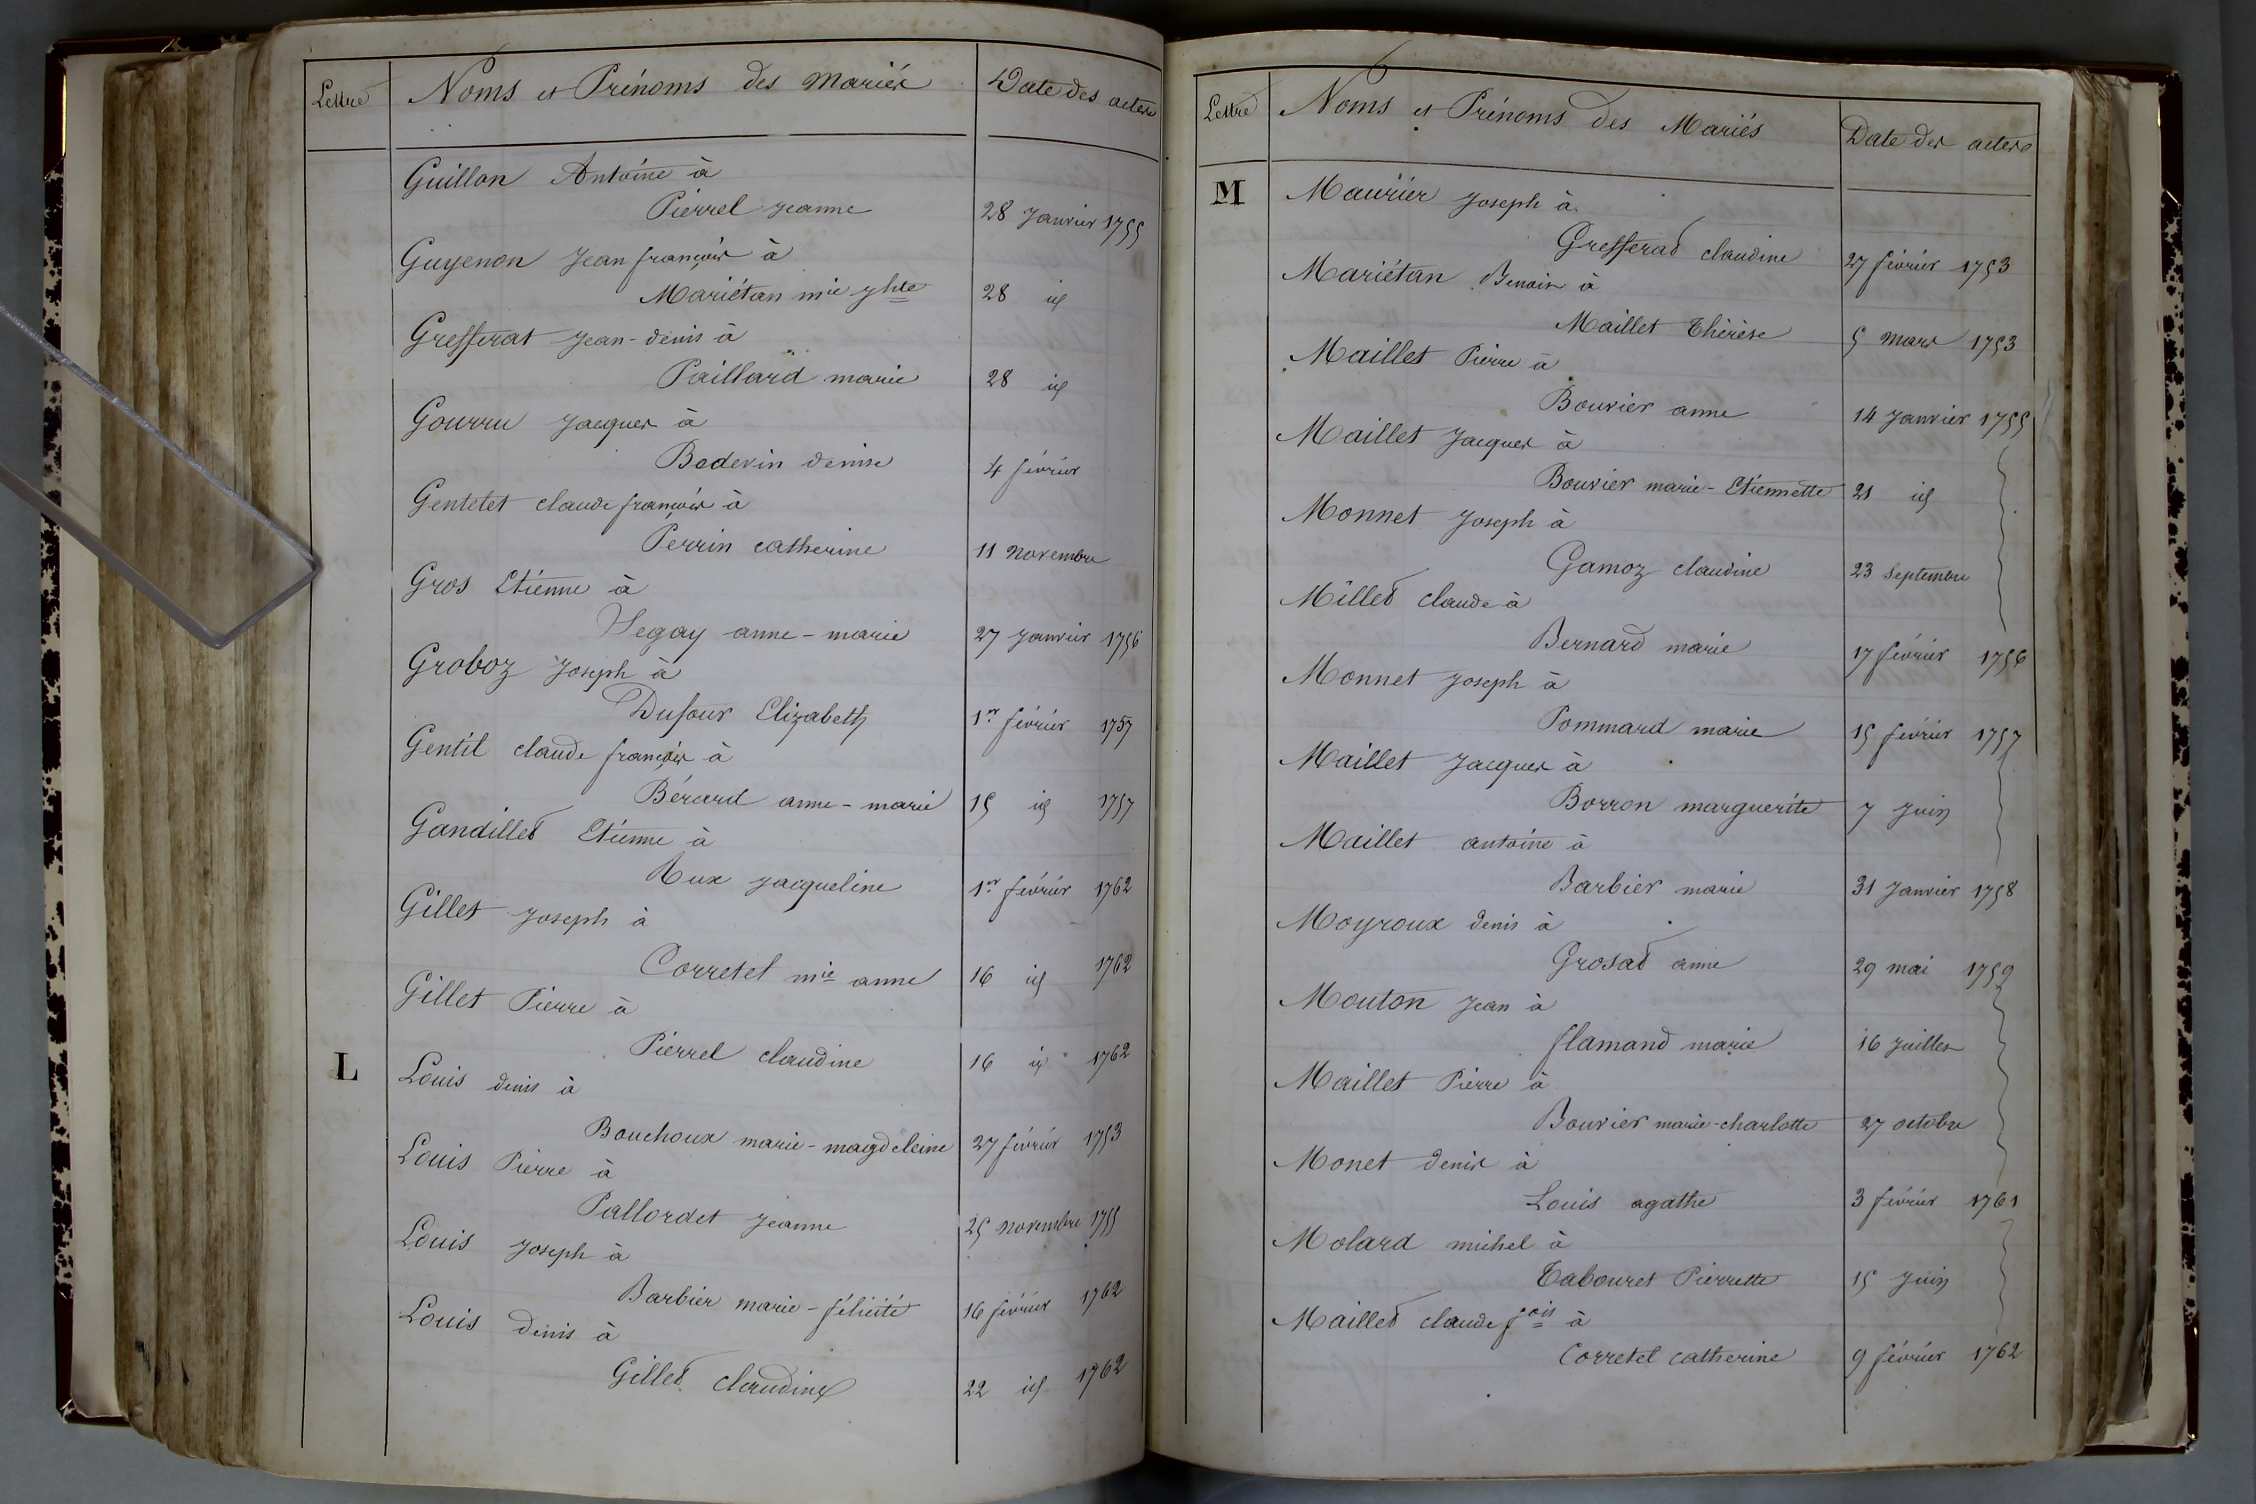 Lettre Noms et Prénoms des Mariés Date des actes
Guillon Antoine à
Pierrel Jeanne 28 Janvier 1755
Guyenon Jean françois à
Mariétan mie 28 id
Grefferat Jean-denis à
Paillard marie 28 id
Gourru Jacques à
Bederin denise 4 février
Gentelet claude françois à
Perrin catherine 11 novembre
Gros Etienne à
Segay anne-marie 27 Janvier 1756
Groboz Joseph à
Dufour Elizabeth 1er février 1757
Gentil claude françois à
Bérard anne-marie 15 id 1757
Gandillet Etienne à
Rux jacqueline 1er février 1762
Gillet Joseph à
Corretel mie anne 16 id 1762
Gillet Pierre à
Pierrel claudine 16 id 1762
L Louis denis à
Bouchoux marie-magdeleine 27 février 1753
Louis Pierre à
Pallordet Jeanne 25 novembre 1755
Louis Joseph à
Barbier marie-félicité 16 février 1762
Louis denis à
Gillet claudine 22 id 1762
Lettre Noms et Prénoms des Mariés Date des actes
M Maurier Joseph à
Grefferat claudine 27 février 1753
Mariétan Benoit à
Maillet Thérèse 5 mars 1753
Maillet Pierre à
Bouvier anne 14 Janvier 1755
Maillet Jacques à
Bouvier marie-Etiennette 21 id
Monnet Joseph à
Gamoz claudine 23 septembre
Millet claude à
Bernard marie 17 février 1756
Monnet Joseph à
Pommard marie 15 février 1757
Maillet Jacques à
Borron marguerite 7 Juin
Maillet antoine à
Barbier marie 31 Janvier 1758
Moyroux denis à
Grosat anne 29 mai 1759
Mouton Jean à
flamand marie 16 Juillet
Maillet Pierre à
Bouvier marie-charlotte 27 octobre
Monet denis à
Louis agathe 3 février 1761
Molard michel à
Tabouret Pierrette 15 Juin
Maillet claude fois à
Corretel catherine 9 février 1762